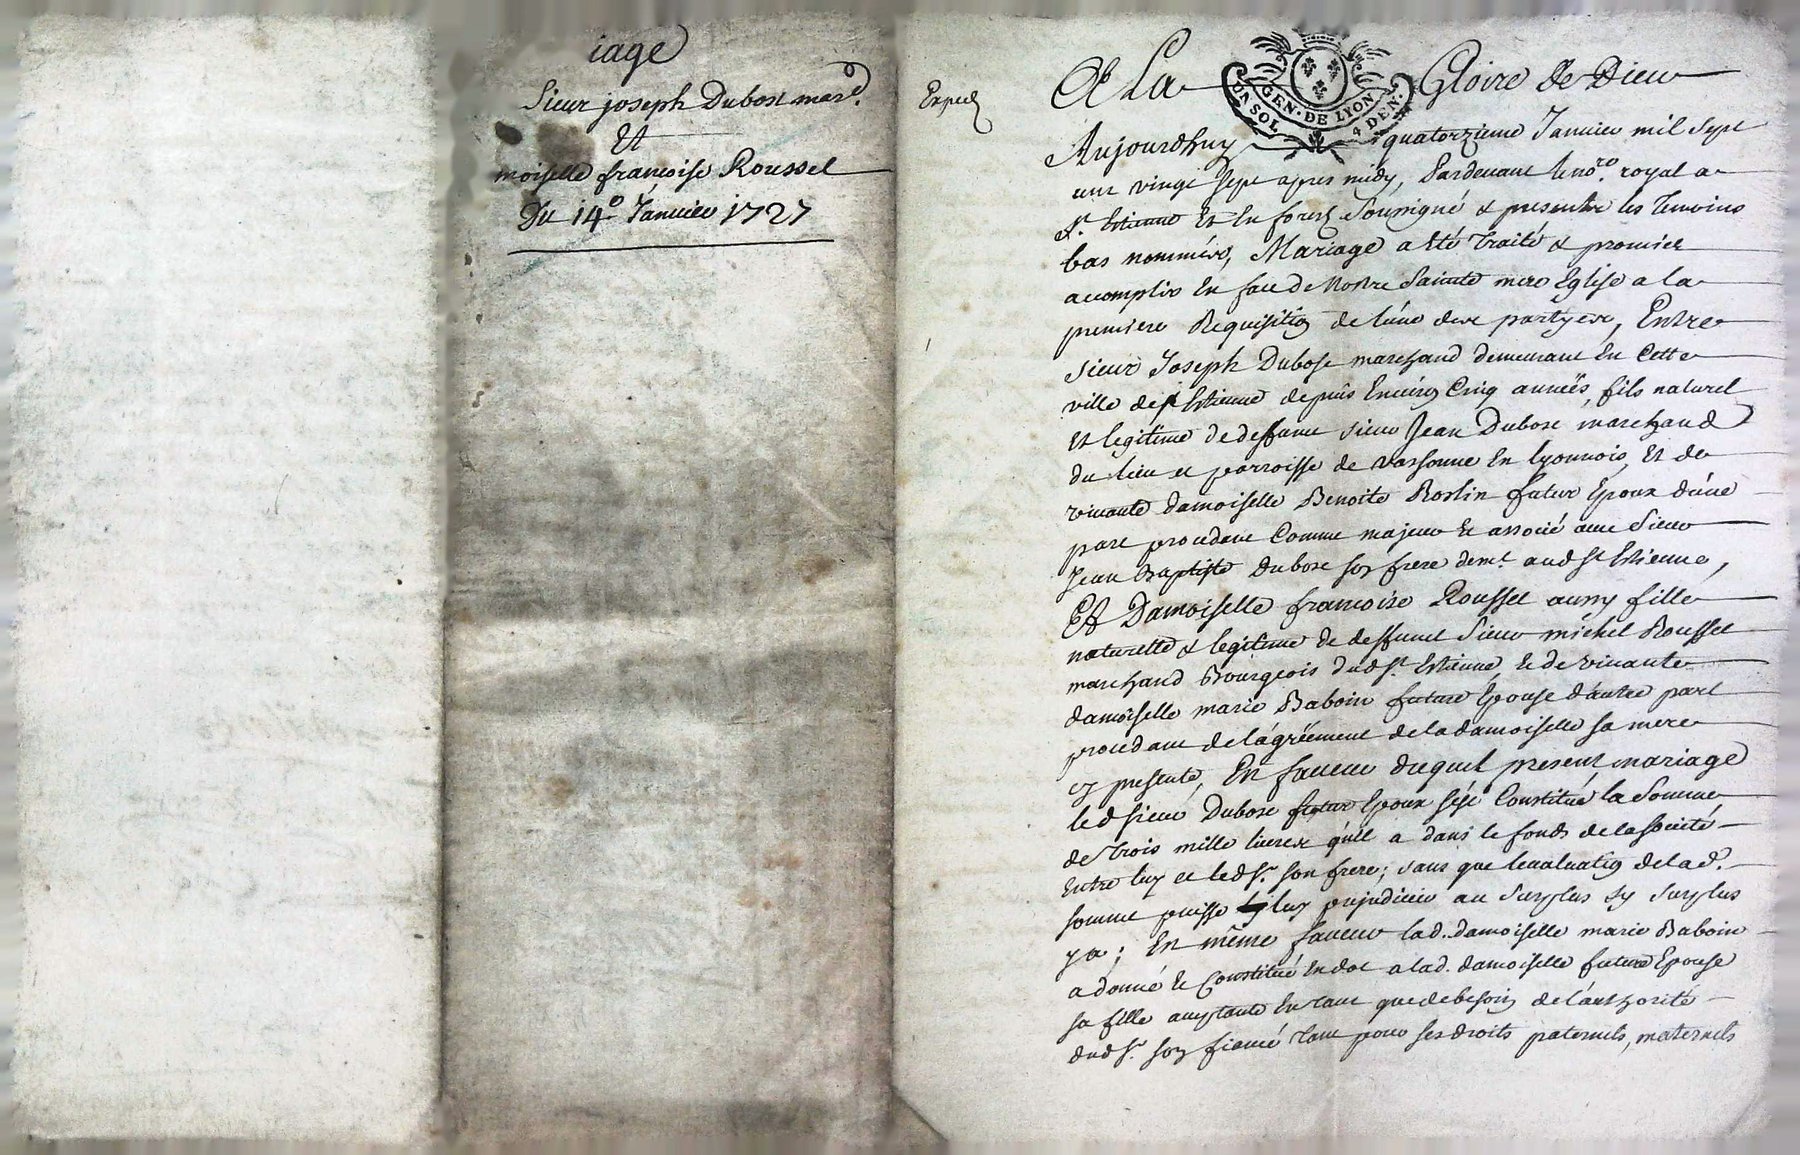 iage
Sieur joseph Dubost mard.
Et
moiselle françoise Roussel
Du 14e. Janvier 1727
Exped
A La Gloire de Dieu
GEN. DE LYON
UN SOL 4 DEN.
Aujourdhuy quatorzieme Janvier mil sept
cent vingt sept apres midy, Pardevant le nore. royal a
St. Estienne Et En forest Soussigné & presents les temoins
bas nommés, Mariage a Eté traité & promis
accomplir En face de Nostre Sainte mere Eglise a la
premiere Requisition de l'une des partyes, Entre
sieur Joseph Dubost marchand demeurant En Cette
ville de St Estienne depuis Environ Cinq années, fils naturel
Et legitime de deffunt sieur Jean Dubost marchand
du lieu et parroisse de Varsonne En lyonnois, Et de
vivante damoiselle Benoite Roslin futur Epoux d'une
part procedant Comme majeur et associé avec Sieur
Jean Baptiste Dubost son frere demt. aud St Estienne,
Et Damoiselle francoise Roussel aussy fille
naturelle & legitime de deffunct Sieur michel Roussel
marchand Bourgeois dud St. Estienne, et de vivante
damoiselle marie Baboin future Epouse d'autre part
procedant de l'agréement de la damoiselle sa mere
cy presente, En faveur duquel present mariage
led sieur Dubost futur Epoux s'est Constitué la Somme
de trois mille livres qu'il a dans le fonds de la societé
Entre luy et led Sr. son frere; sans que levaluation de lad.
somme puisse luy prejudicier au surplus sy surplus
y a; En même faveur lad. damoiselle marie Baboin
a donné et Constitué En dot a lad. damoiselle future Epouse
sa fille acceptante En tant que de besoin de l'authorité
dud Sr. son fiancé tant pour ses droits paternels, maternels